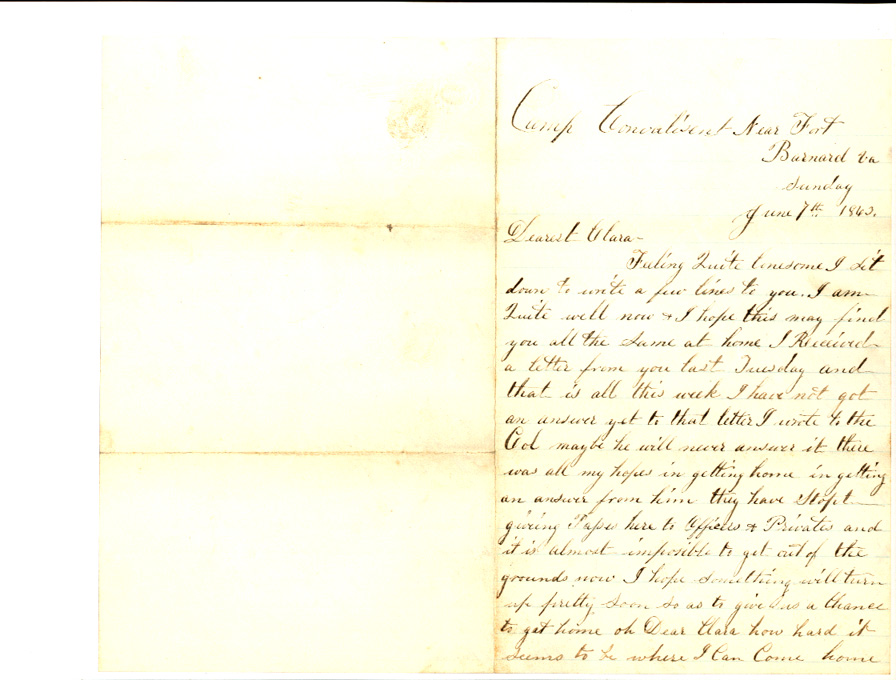 Camp Convalisent Near Fort
Barnard Va
Sunday
June 7th 1863.
Dearest Clara-
Feeling Quite lonesome I sit
down to write a few lines to you. I am
Quite well now & I hope this may find
you all the same at home I Recieved
a letter from you last Tuesday and
that is all this week I have not got
an answer yet to that letter I wrote to the
Col maybe he will never answer it there
was all my hopes in getting home in getting
an answer from him they have Stopt
giveing Passes here to Officers & Privates and
it is almost imposible to get out of the
grounds now I hope something will turn
up pretty soon so as to give us a Chance
to get home oh Dear Clara how hard it
seems to be where I Can Come home